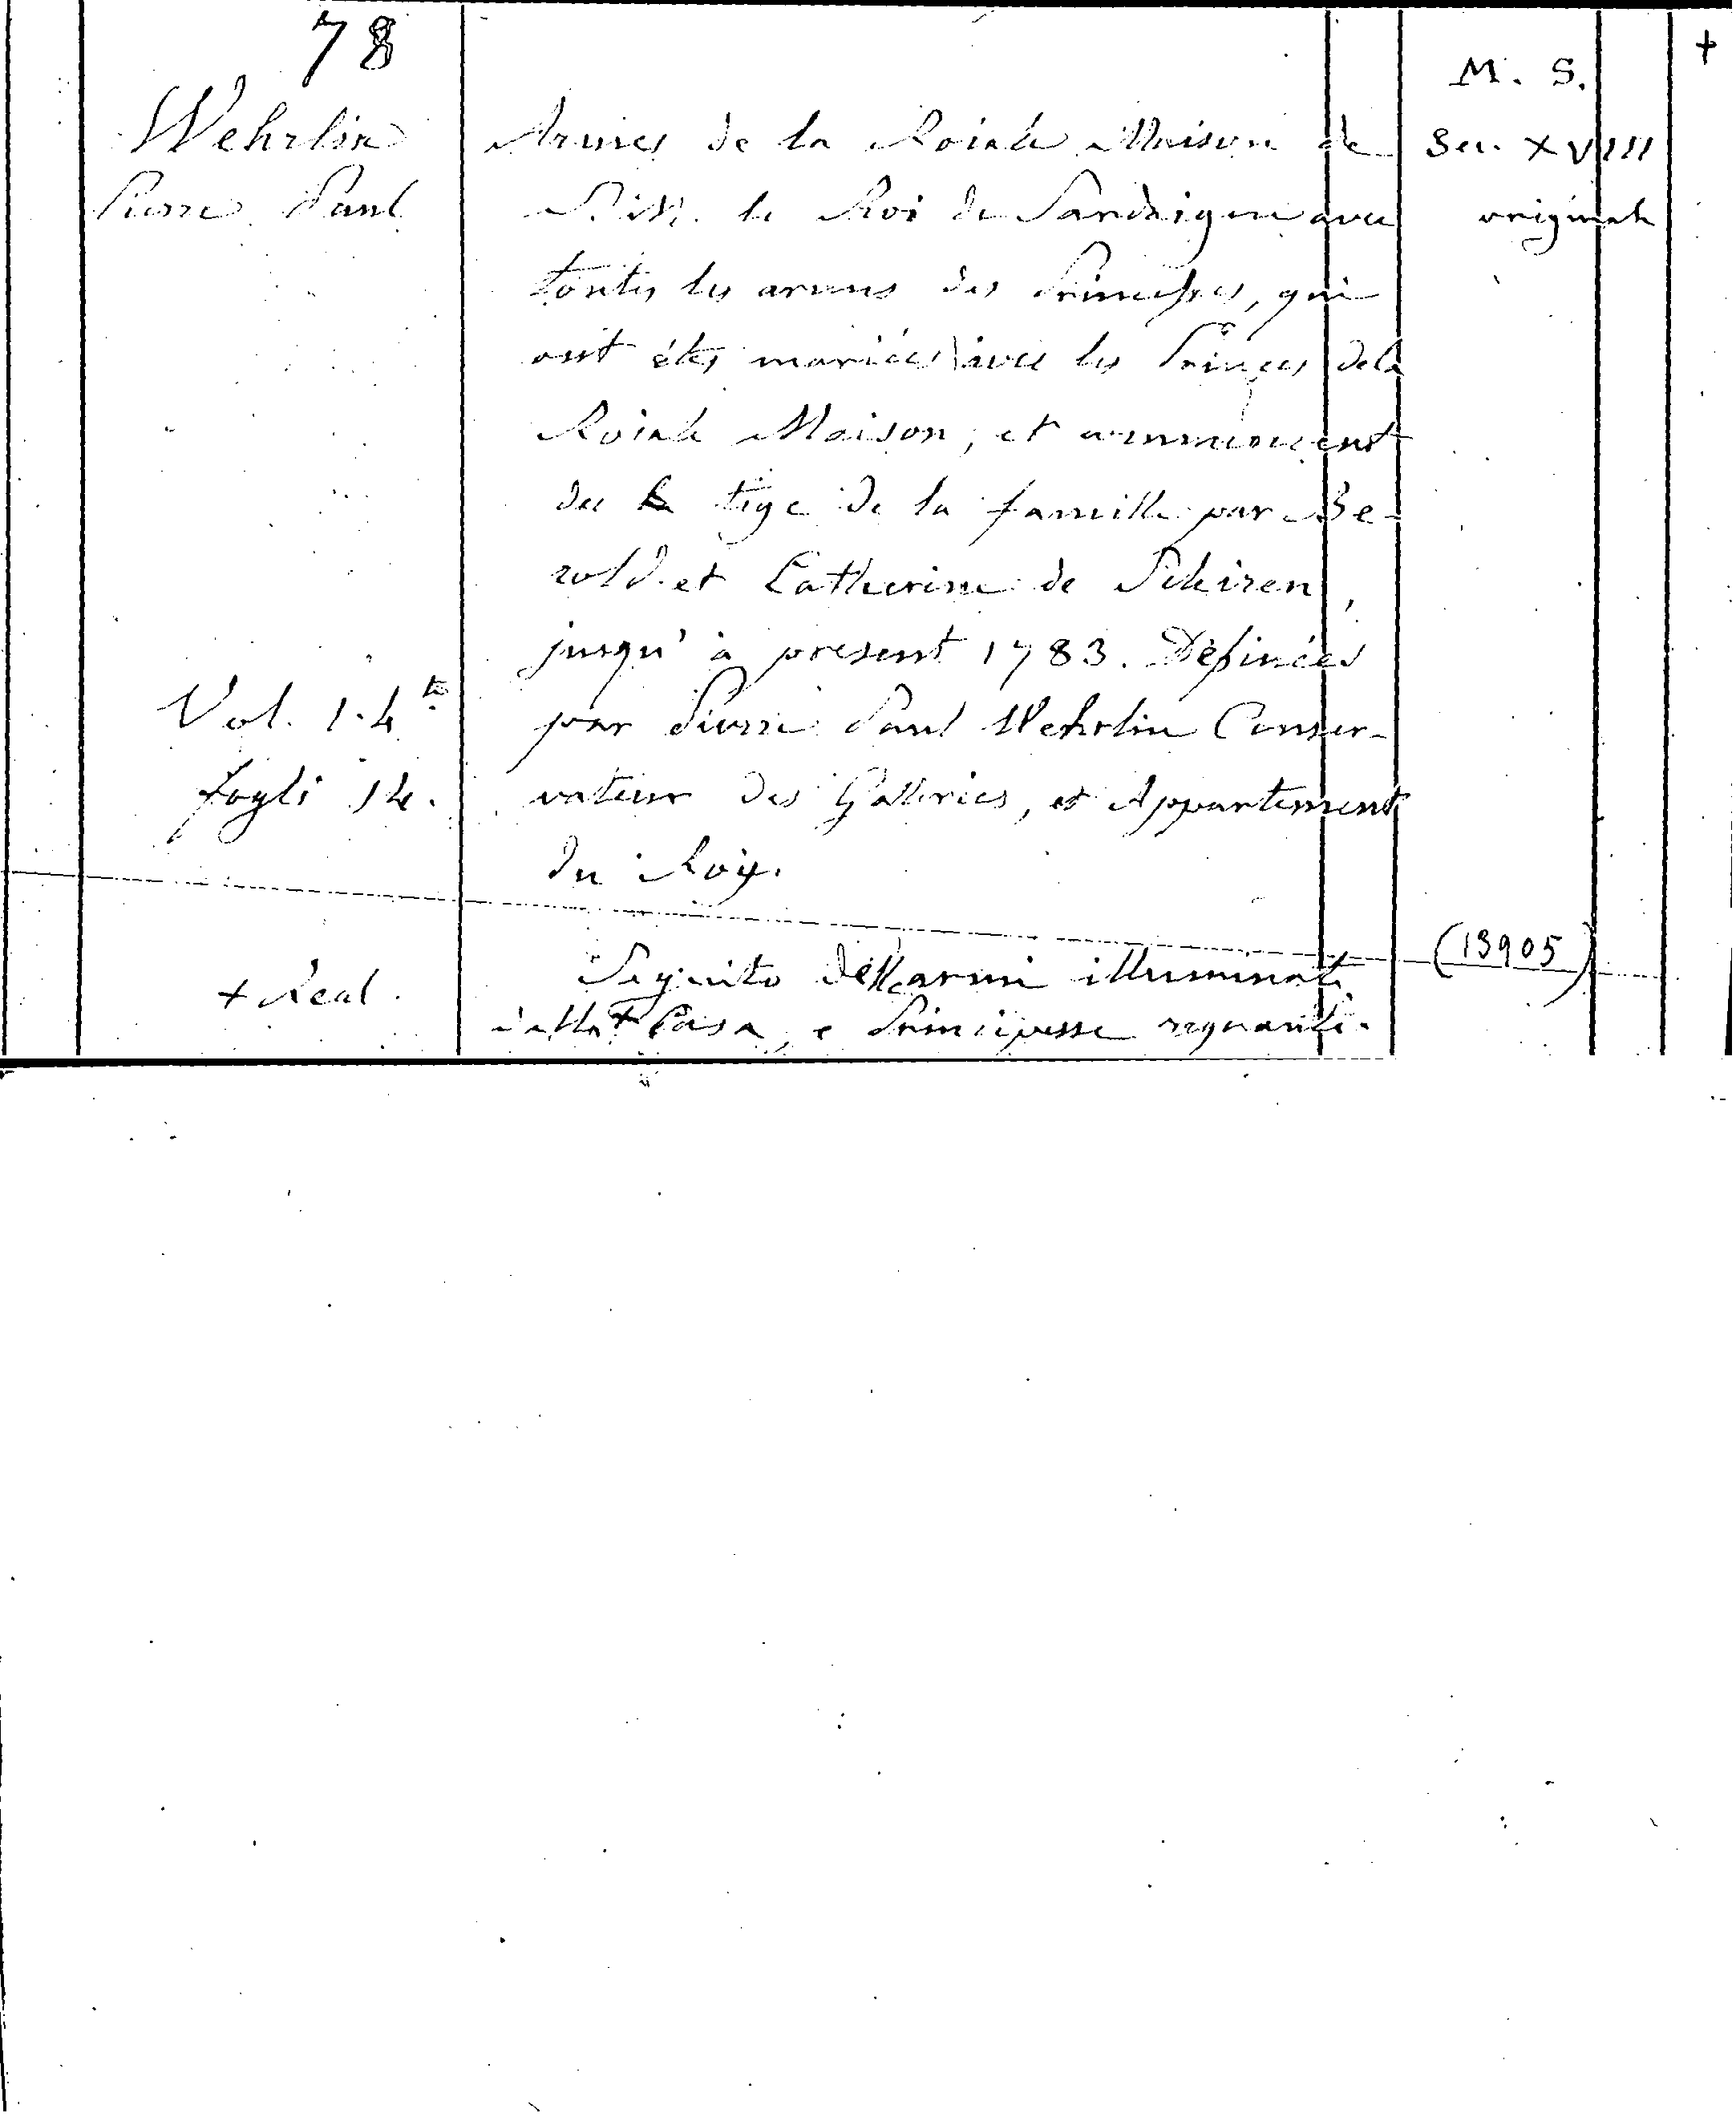 78
Wehrlin
Pierre Paul
Vol. 1. 4.to
fogli 14.
+ Real.
Armes de la Roiale Maison de
S. M. le Roi de Sardaigne avec
toutes les armes des Princesses, qui
ont étes mariées avec les Princes de la
Roiale Maison, et commencent
de la tige de la famille par Be-
rold. et Catherine de Schiren,
jusqu'à present 1783. Définées
par Pierre Paul Wehrlin Conser-
vateur des Galleries, et Appartement
du Roy.
Seguito delle armi illuminate
della + Casa, e Principesse regnanti.
M. S.
Sec. XVIII
originale
(13905)
+